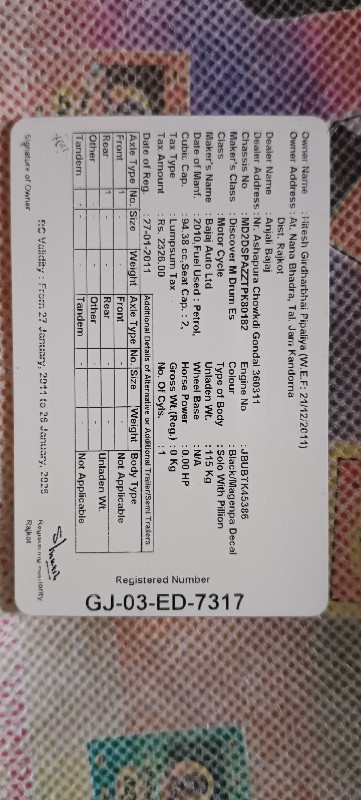 Registered Number
GJ-03-ED-7317
Owner Name : Hitesh Girdharbhai Pipaliya (W.E.F: 21/12/2011)
Owner Address : At. Nana Bhadra, Tal. Jam Kandorna
Dist. Rajkot
Dealer Name : Anjali Bajaj
Dealer Address : Nr. Ashapura Chowkdi Gondal 360311
Chassis No : MD2DSPAZZTPK80182 Engine No : JBUBTK45386
Maker's Class : Discover M Drum Es Colour : Black/Magenpa Decal
Class : Motor Cycle Type of Body : Solo With Pillion
Maker's Name : Bajaj Auto Ltd Unladen Wt. : 115 Kg
Date of Manf. : /2010, Fuel Used : Petrol, Wheel Base : N/A
Cubic Cap. : 94.38 cc, Seat Cap. : 2, Horse Power : 0.00 HP
Tax Type : Lumpsum Tax Gross Wt.(Reg.) : 0 Kg
Tax Amount : Rs. 2326.00 No. Of Cyls. : 1
Date of Reg. : 27-01-2011 Additional Details of Alternative or Additional Trailer/Semi Trailers
Axle Type No. Size Weight Axle Type No. Size Weight Body Type
Front 1 - - Front - - Not Applicable
Rear 1 - - Rear - - Unladen Wt.
Other - - - Other - - Not Applicable
Tandem - - - Tandem - -
RC Validity : From 27 January, 2011 to 26 January, 2026
Signature of Owner
Registering Authority
Rajkot